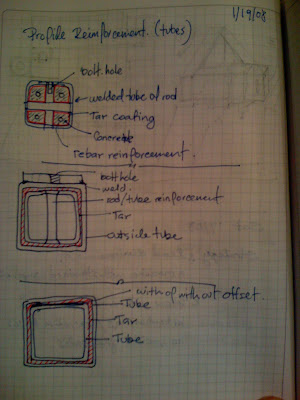 1/19/08
Profile Reinforcement. (tubes)
bolt hole
welded tube of rod
Tar coating
Concrete
rebar reinforcement.
bolt hole
weld.
rod/tube reinforcement
Tar
outside tube
with of without offset.
Tube
Tar
Tube